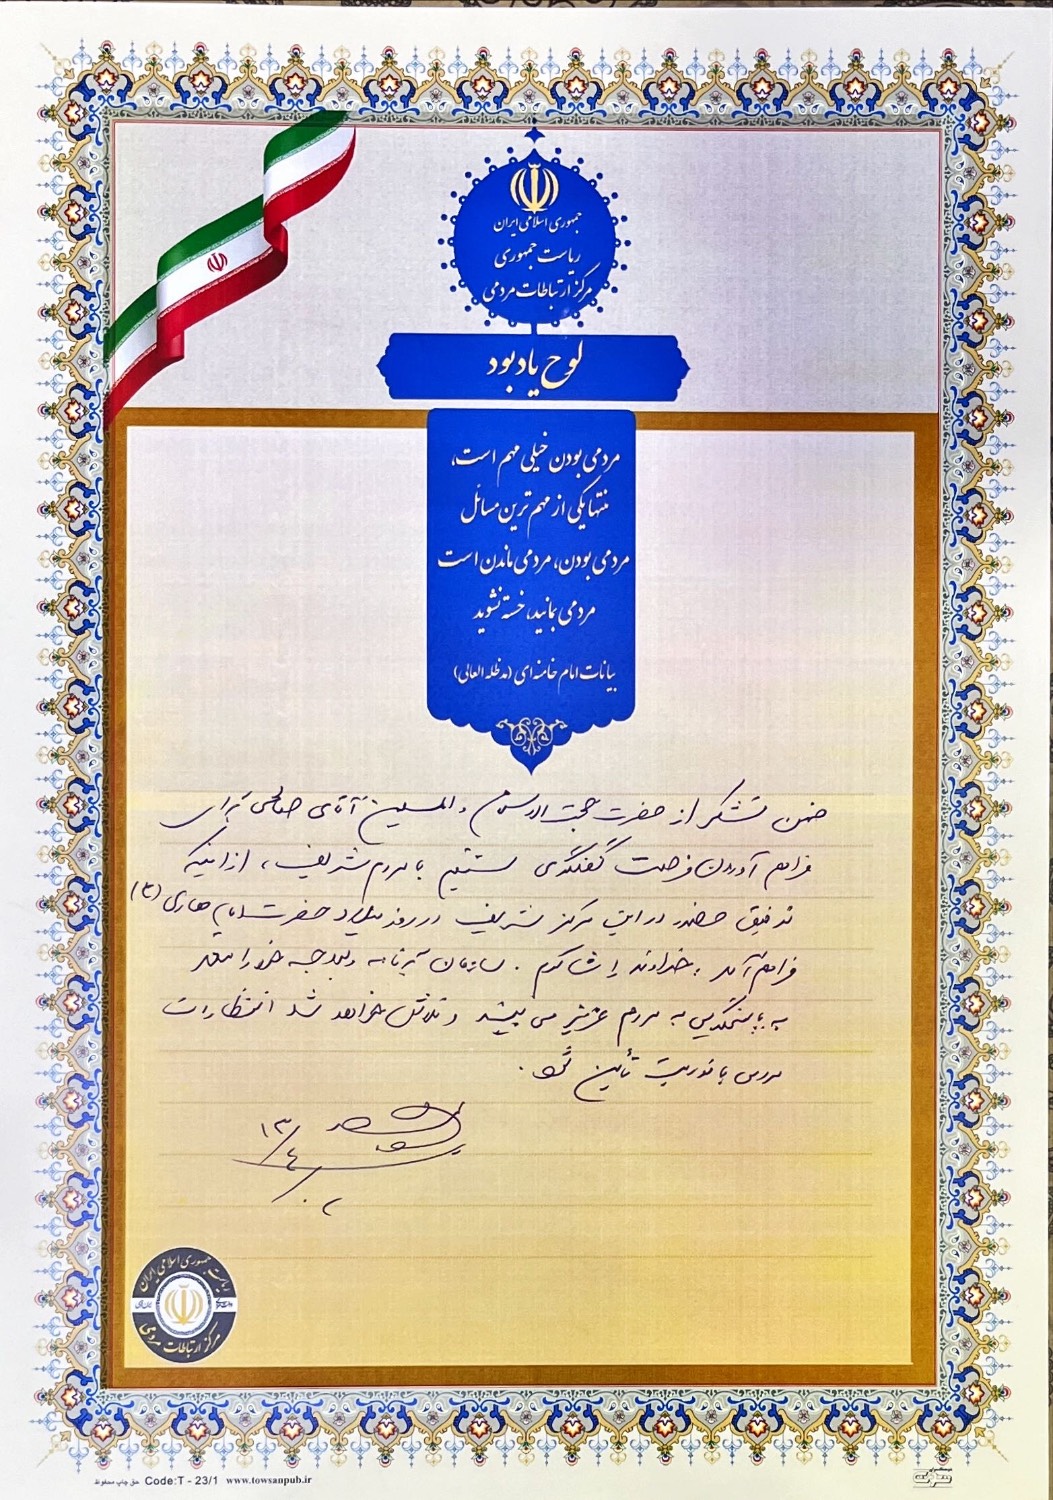 جمهوری اسلامی ایران
ریاست جمهوری
مرکز ارتباطات مردمی
لوح یادبود
مردمی بودن خیلی مهم است،
منتها یکی از مهم ترین مسائل
مردمی بودن، مردمی ماندن است
مردمی بمانید، خسته نشوید
بیانات امام خامنه ای (مدظله العالی)
ضمن تشکر از حضرت حجت الاسلام و المسلمین آقای صالحی برای
فراهم آوردن فرصت گفتگوی مستقیم با مردم شریف، از اینکه
توفیق حضور در این مرکز شریف در روز میلاد حضرت امام هادی (ع)
فراهم آمد، خداوند را شاکرم. سازمان برنامه و بودجه خود را متعهد
به پاسخگویی به مردم عزیز می بیند و تلاش خواهد شد انتظارات
مردمی با فوریت تأمین شود.
۱۳/۴
ریاست جمهوری اسلامی ایران
مرکز ارتباطات مردمی
حق چاپ محفوظ Code:T - 23/1 www.towsanpub.ir